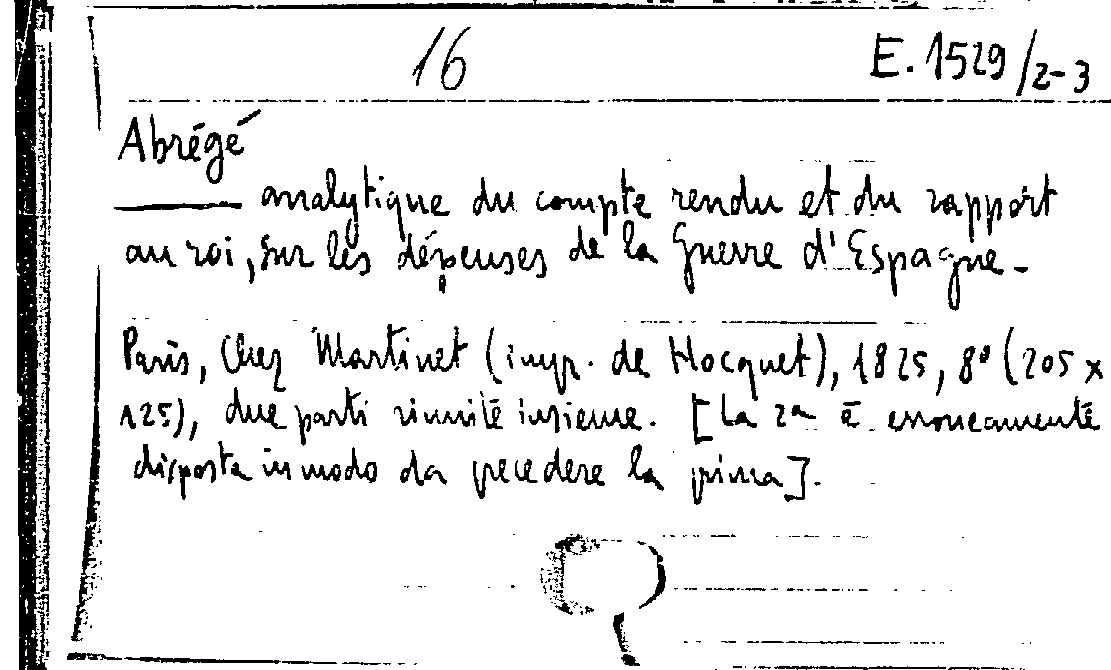 16
E. 1529/2-3
Abrégé
——— analytique du compte rendu et du rapport
au roi, sur les dépenses de la Guerre d'Espagne.
Paris, Chez Martinet (imp. de Hocquet), 1825, 8° (205 x
125), due parti riunite insieme. [La 2a è erroneamente
disposta in modo da precedere la prima].